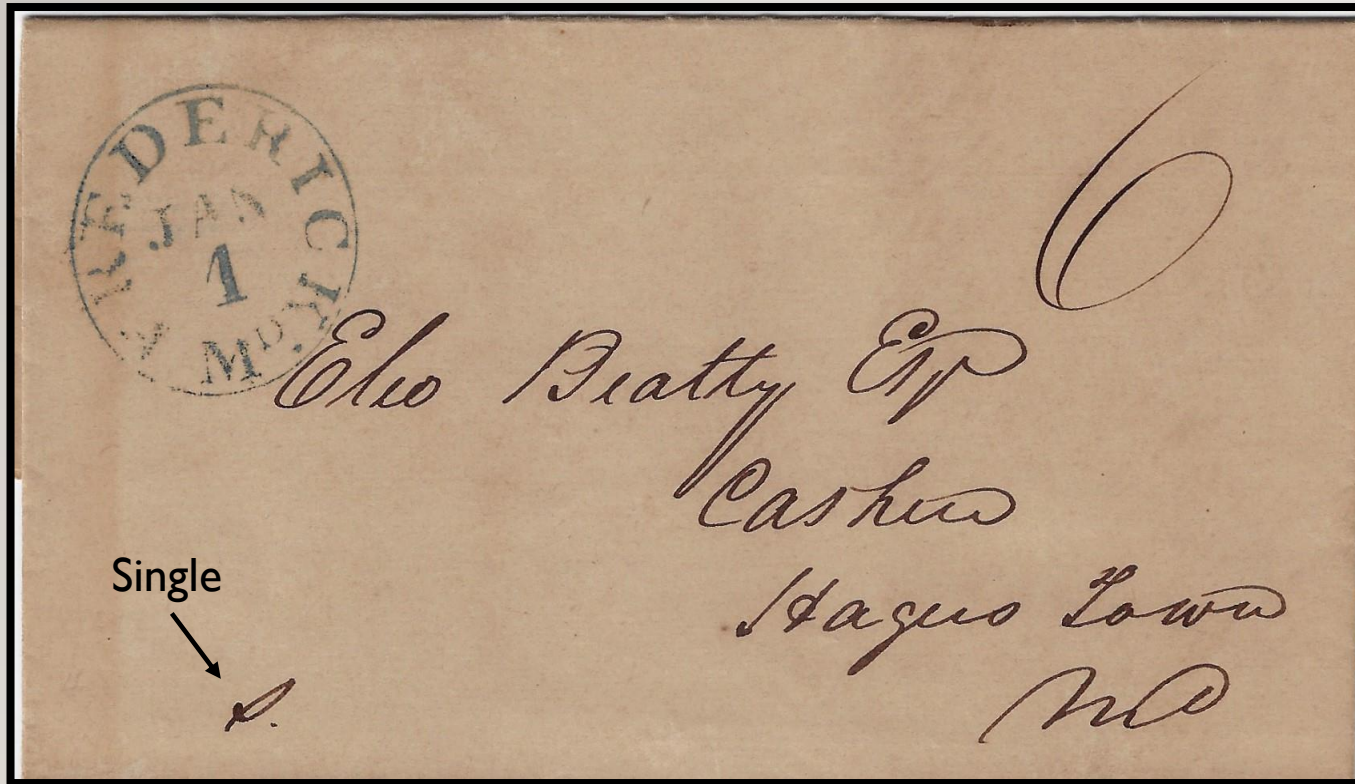 FREDERICK Md.
JAN
1
6
Elie Beatty Esq
Cashier
Hagers Town
Md
Single
S.